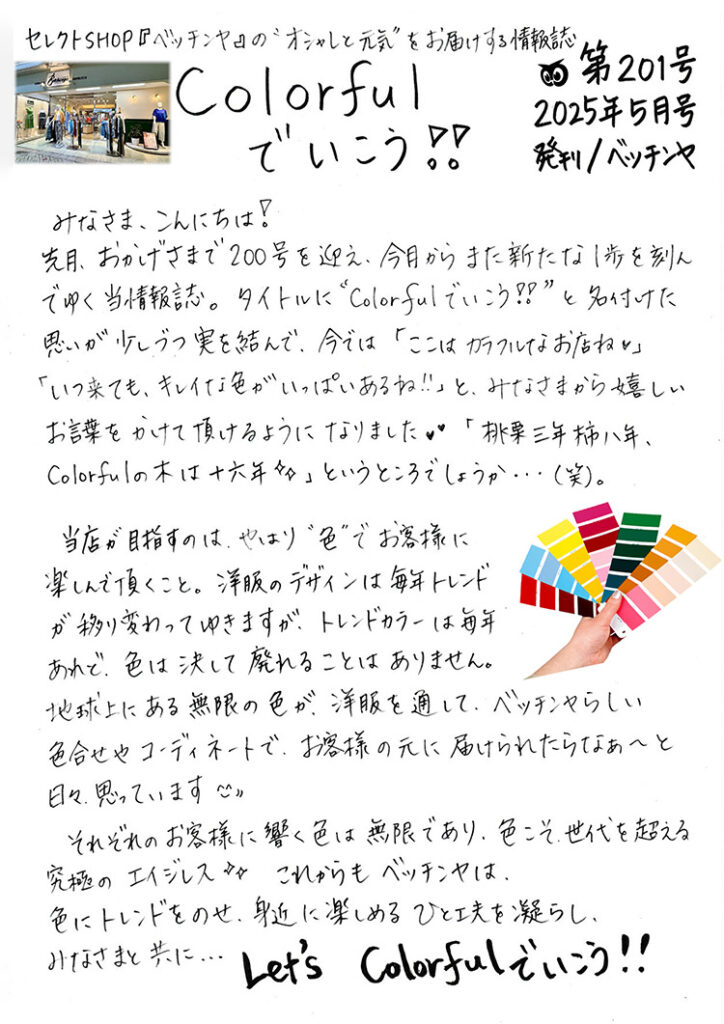 セレクトSHOP『ベッチンヤ』の“オシャレと元気”をお届けする情報誌
Colorful
でいこう!!
第201号
2025年5月号
発刊/ベッチンヤ
みなさま、こんにちは!
先月、おかげさまで200号を迎え、今月からまた新たな1歩を刻ん
でゆく当情報誌。タイトルに“Colorfulでいこう!!”と名付けた
思いが少しづつ実を結んで、今では「ここはカラフルなお店ね♥」
「いつ来ても、キレイな色がいっぱいあるね!!」と、みなさまから嬉しい
お言葉をかけて頂けるようになりました♥♥「桃栗三年柿八年、
Colorfulの木は十六年✧✧」というところでしょうか・・・(笑)。
当店が目指すのは、やはり“色”でお客様に
楽しんで頂くこと。洋服のデザインは毎年トレンド
が移り変わってゆきますが、トレンドカラーは毎年
あれど、色は決して廃れることはありません。
地球上にある無限の色が、洋服を通して、ベッチンヤらしい
色合せやコーディネートで、お客様の元に届けられたらなぁ〜と
日々、思っています
それぞれのお客様に響く色は無限であり、色こそ、世代を超える
究極のエイジレス✧✧ これからもベッチンヤは、
色にトレンドをのせ、身近に楽しめるひと工夫を凝らし、
みなさまと共に・・・
Let's Colorfulでいこう!!